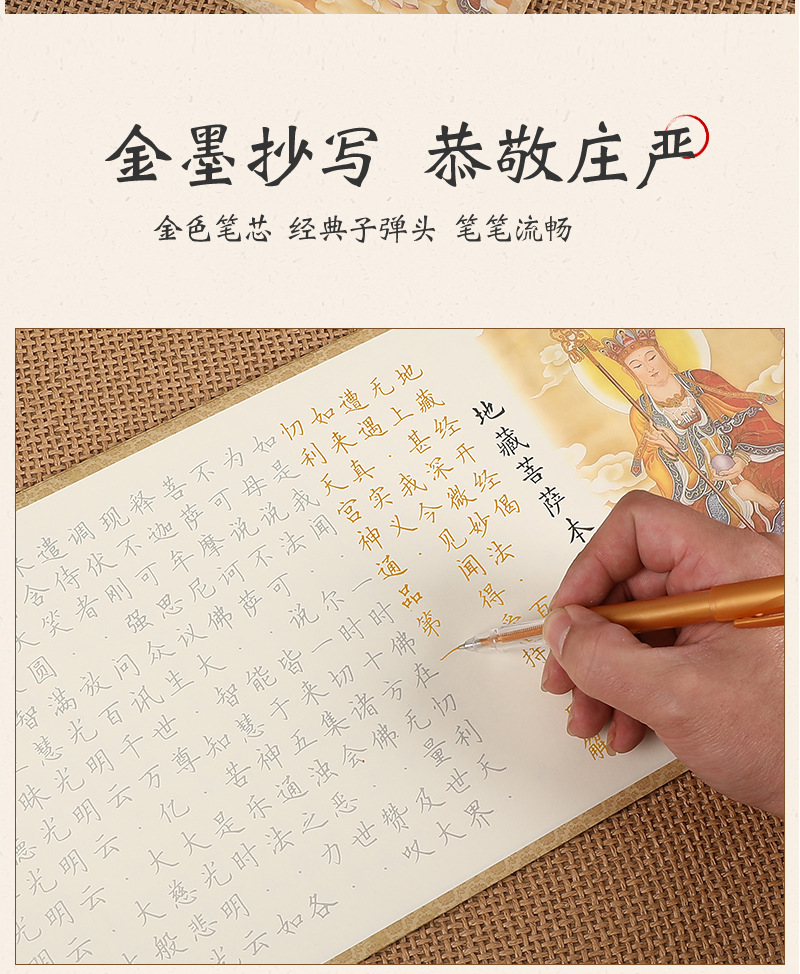 金墨抄写 恭敬庄严
金色笔芯 经典子弹头 笔笔流畅
地藏菩萨本
地藏经开经偈
无上甚深微妙法.百
遭遇.我今见闻得受持.解
如来真实义.
忉利天宫神通品第一
如是我闻.一时佛在忉利天.
为母说法.尔时十方无量世界.
不可说不可.说一切诸佛及大
菩萨摩诃萨.皆来集会.赞叹
释迦牟尼佛.能于五浊恶世.
现不可思议大智慧神通之力
调伏刚强众生.知苦乐法.各
遣侍者.问讯世尊.是时如
来含笑.放百千万亿大光明云
大圆满光明云.大慈悲
智慧光明云.大般
昧光明云.
光明云.
光明云